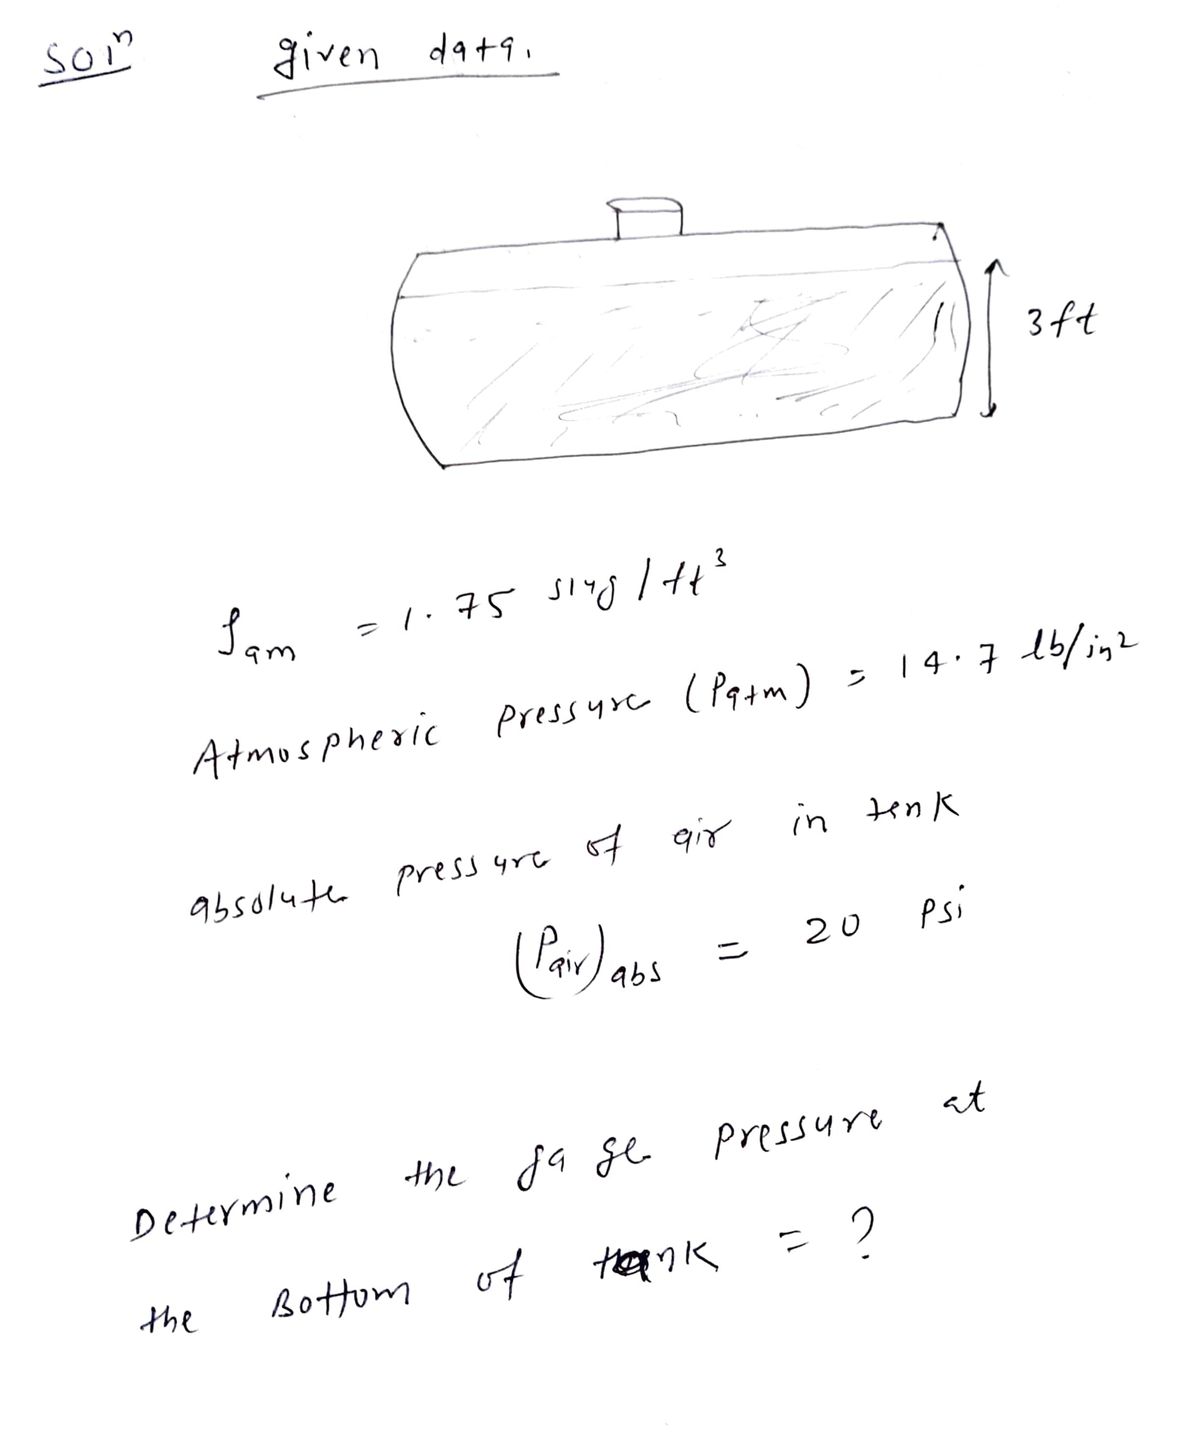 Solⁿ given data.
3 ft
ρam = 1.75 slug / ft³
Atmospheric pressure (Patm) = 14.7 lb/in²
absolute pressure of air in tank
(Pair)abs = 20 psi
Determine the gage pressure at
the Bottom of tank = ?